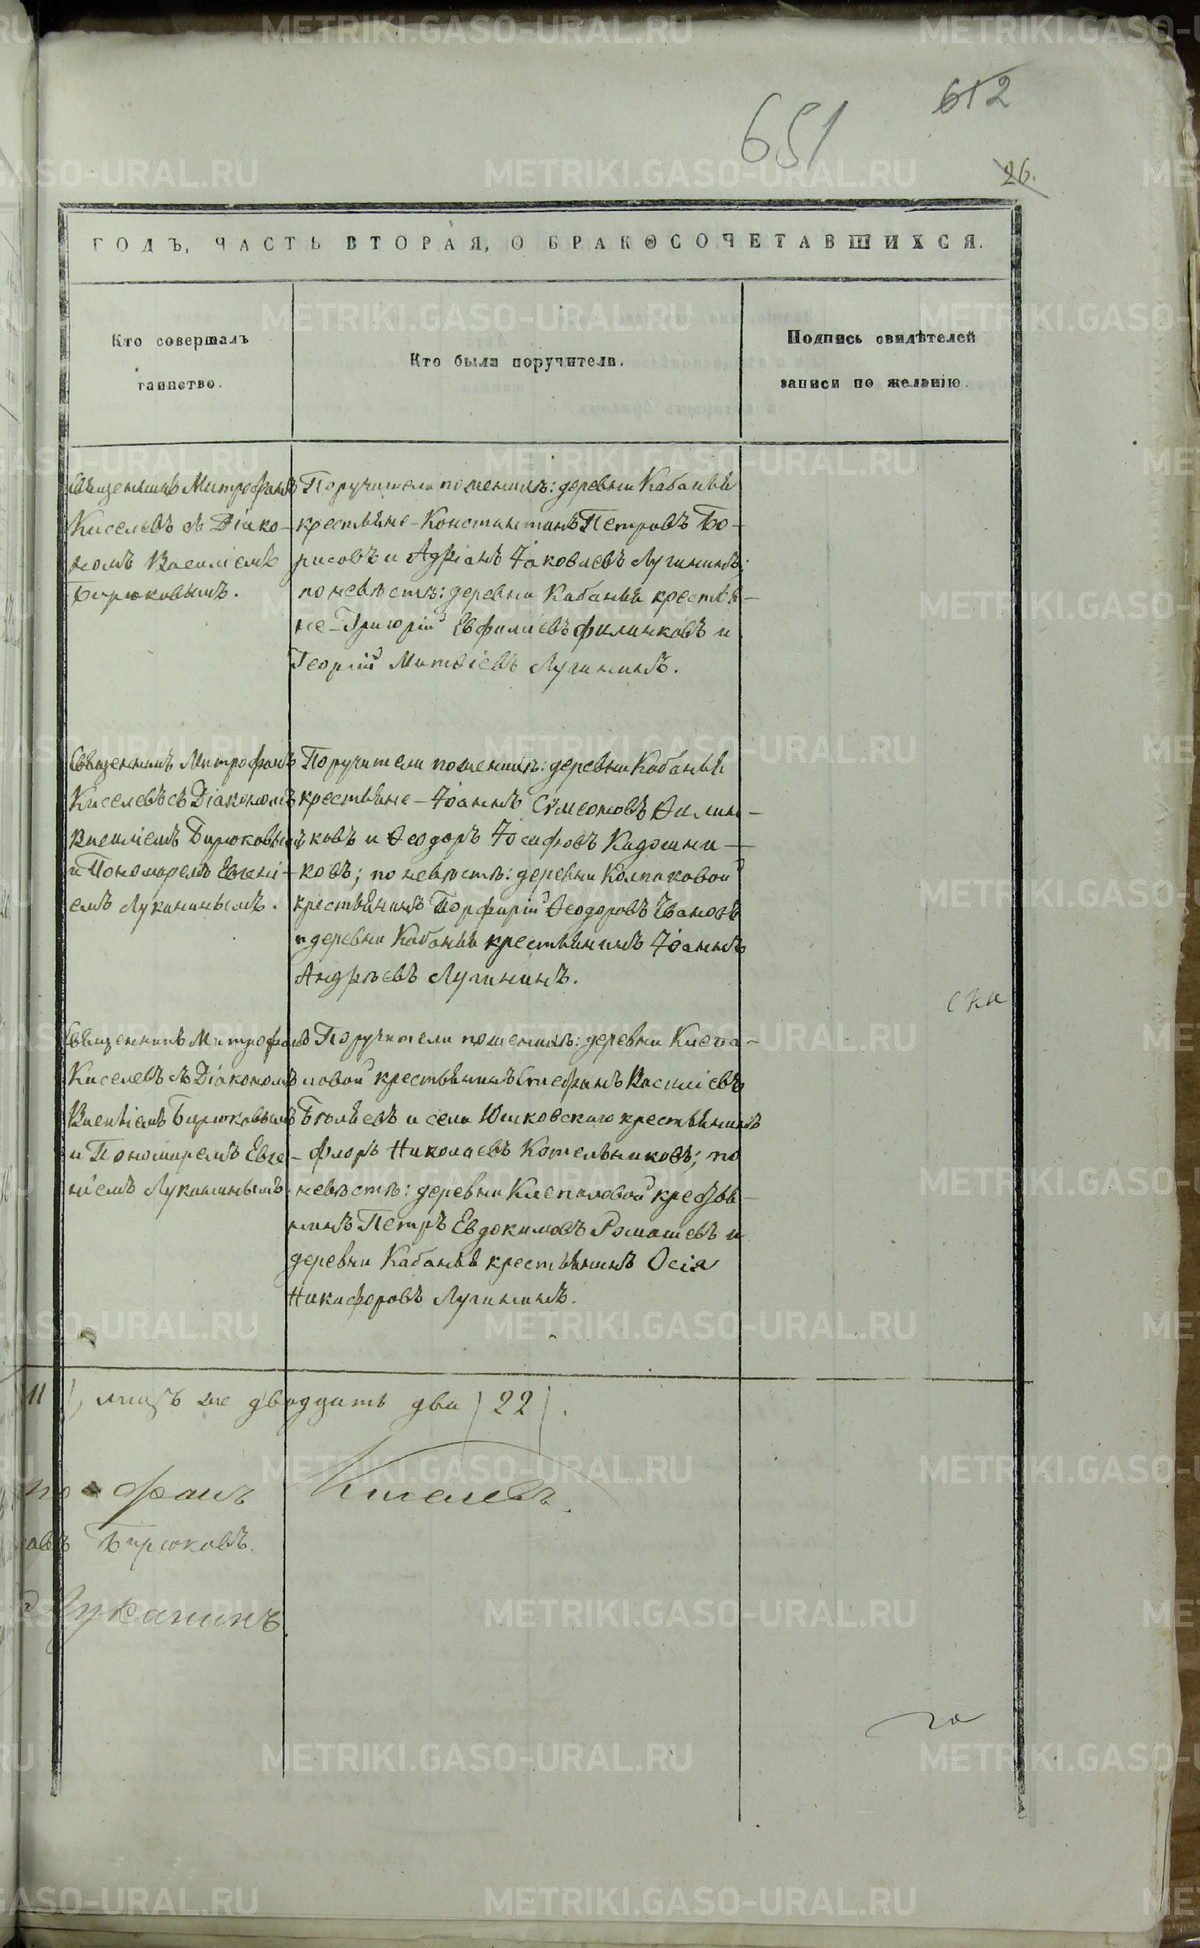 612
651
26.
ГОДЪ, ЧАСТЬ ВТОРАЯ, О БРАКОСОЧЕТАВШИХСЯ.
Кто совершалъ
таинство.
Кто были поручители.
Подпись свидѣтелей
записи по желанію.
Священникъ Митрофанъ
Киселевъ съ Діако-
номъ Василіемъ
Бирюковымъ.
Поручители по женихѣ: деревни Кабаньей
крестьяне - Константинъ Петровъ Бо-
рисовъ и Адріанъ Іаковлевъ Лугининъ;
по невѣстѣ: деревни Кабаньей крестья-
не - Григорій Евфиміевъ Филинковъ и
Георгій Матѳіевъ Лугининъ.
Священникъ Митрофанъ
Киселевъ съ Діакономъ
Василіемъ Бирюковымъ
и Пономаремъ Евгені-
емъ Луканинымъ.
Поручители по женихѣ: деревни Кабаньей
крестьяне - Іоаннъ Сѵмеоновъ Филин-
ковъ и Ѳеодоръ Іосифовъ Кадошни-
ковъ; по невѣстѣ: деревни Колпаковой
крестьянинъ Порфирій Ѳеодоровъ Ивановъ
и деревни Кабаньей крестьянинъ Іоаннъ
Андреевъ Лугининъ.
Священникъ Митрофанъ
Киселевъ съ Діакономъ
Василіемъ Бирюковымъ
и Пономаремъ Евге-
ніемъ Луканинымъ.
Поручители по женихѣ: деревни Клепа-
ловой крестьянинъ Стефанъ Василіевъ
и села Юшковскаго крестьянинъ
Флоръ Николаевъ Котельниковъ; по
невѣстѣ: деревни Клепаловой кресть-
янинъ Петръ Евдокимовъ Ромашевъ и
деревни Кабаньей крестьянинъ Осія
Никифоровъ Лугининъ.
11), лицъ же двадцать два (22).
фанъ Киселевъ.
Бирюковъ.
Луканинъ
METRIKI.GASO-URAL.RU